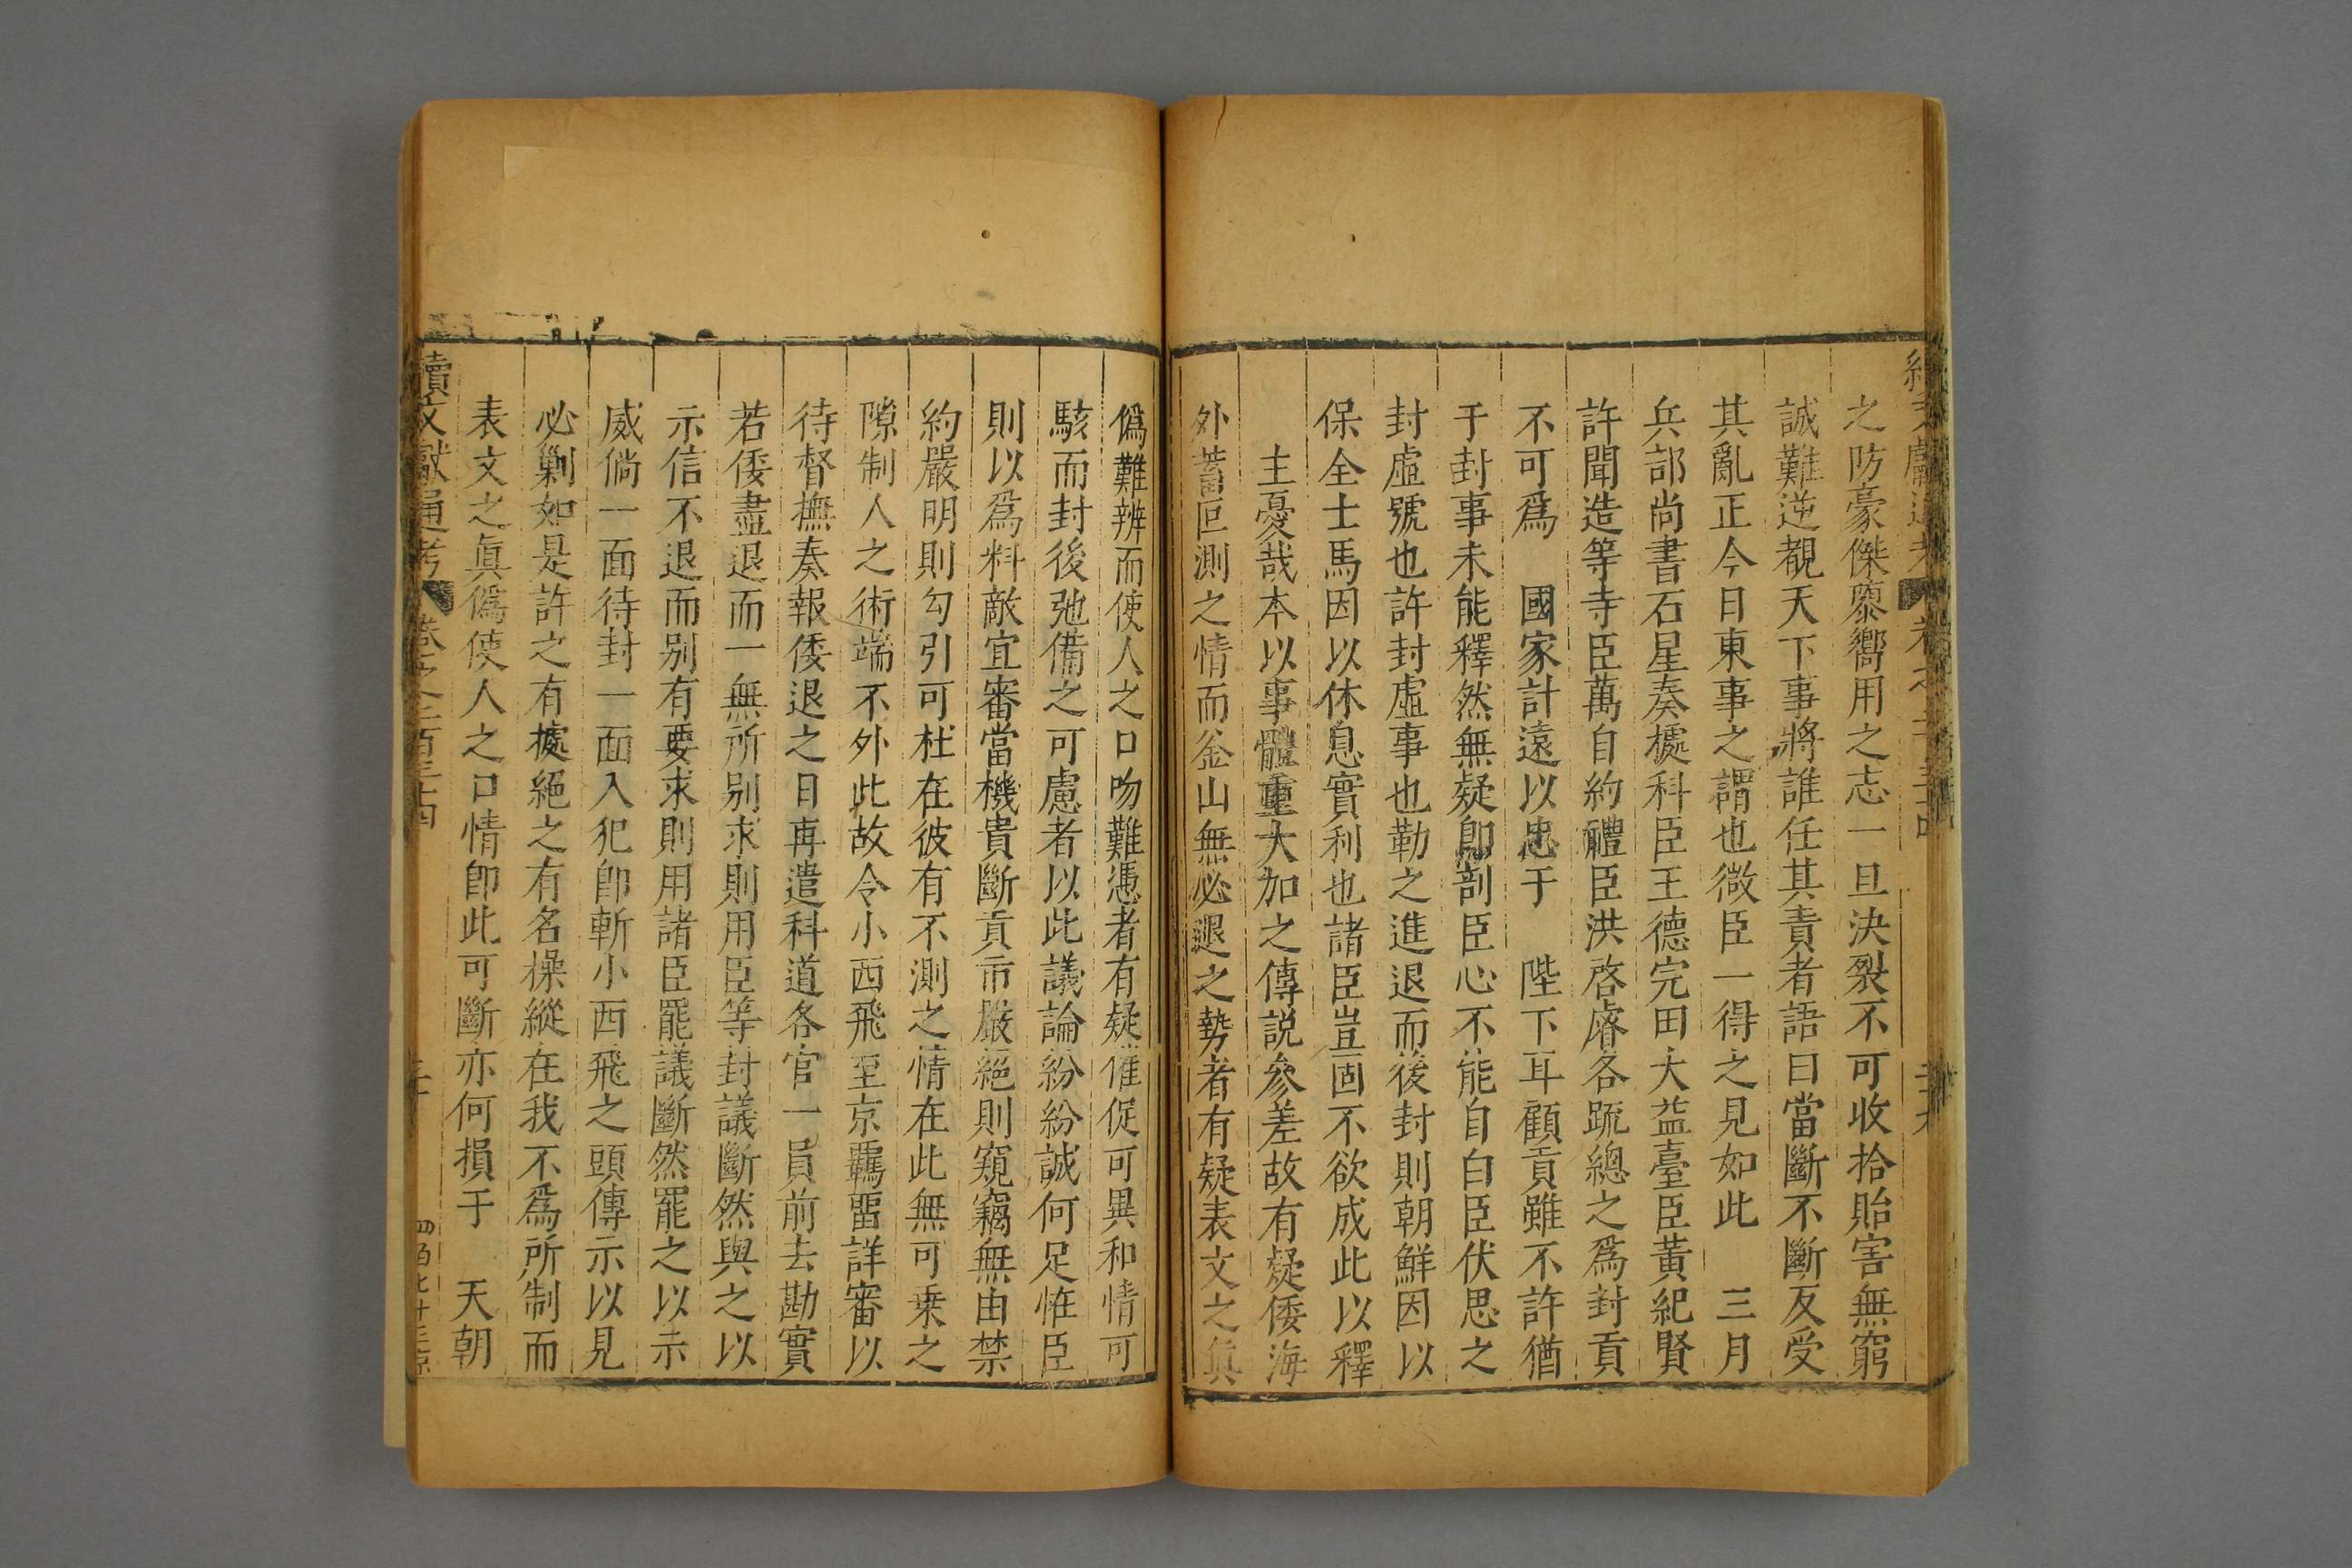 之防豪傑隳嚮用之志一旦決裂不可收拾貽害無窮
誠難逆覩天下事將誰任其責者語曰當斷不斷反受
其亂正今日東事之謂也微臣一得之見如此　三月
兵部尚書石星奏㨿科臣王德完田大益臺臣黃紀賢
許聞造等寺臣萬自約禮臣洪啓睿各疏總之爲封貢
不可爲　國家計遠以忠于　陛下耳顧貢雖不許猶
于封事未能釋然無疑卽剖臣心不能自白臣伏思之
封虛號也許封虛事也勒之進退而後封則朝鮮因以
保全士馬因以休息實利也諸臣豈固不欲成此以釋
主憂哉本以事體重大加之傳說參差故有疑倭海
外蓄叵測之情而釜山無必退之勢者有疑表文之眞
僞難辨而使人之口吻難憑者有疑催促可異和情可
駭而封後弛備之可慮者以此議論紛紛誠何足恠臣
則以爲料敵宜審當機貴斷貢市嚴絕則窺竊無由禁
約嚴明則勾引可杜在彼有不測之情在此無可乗之
隙制人之術端不外此故令小西飛至京覊畱詳審以
待督撫奏報倭退之日再遣科道各官一員前去勘實
若倭盡退而一無所别求則用臣等封議斷然與之以
示信不退而别有要求則用諸臣罷議斷然罷之以示
威倘一面待封一面入犯卽斬小西飛之頭傳示以見
必剿如是許之有㨿絕之有名操縱在我不爲所制而
表文之眞僞使人之口情卽此可斷亦何損于　天朝
續文獻通考　卷之二百三十四